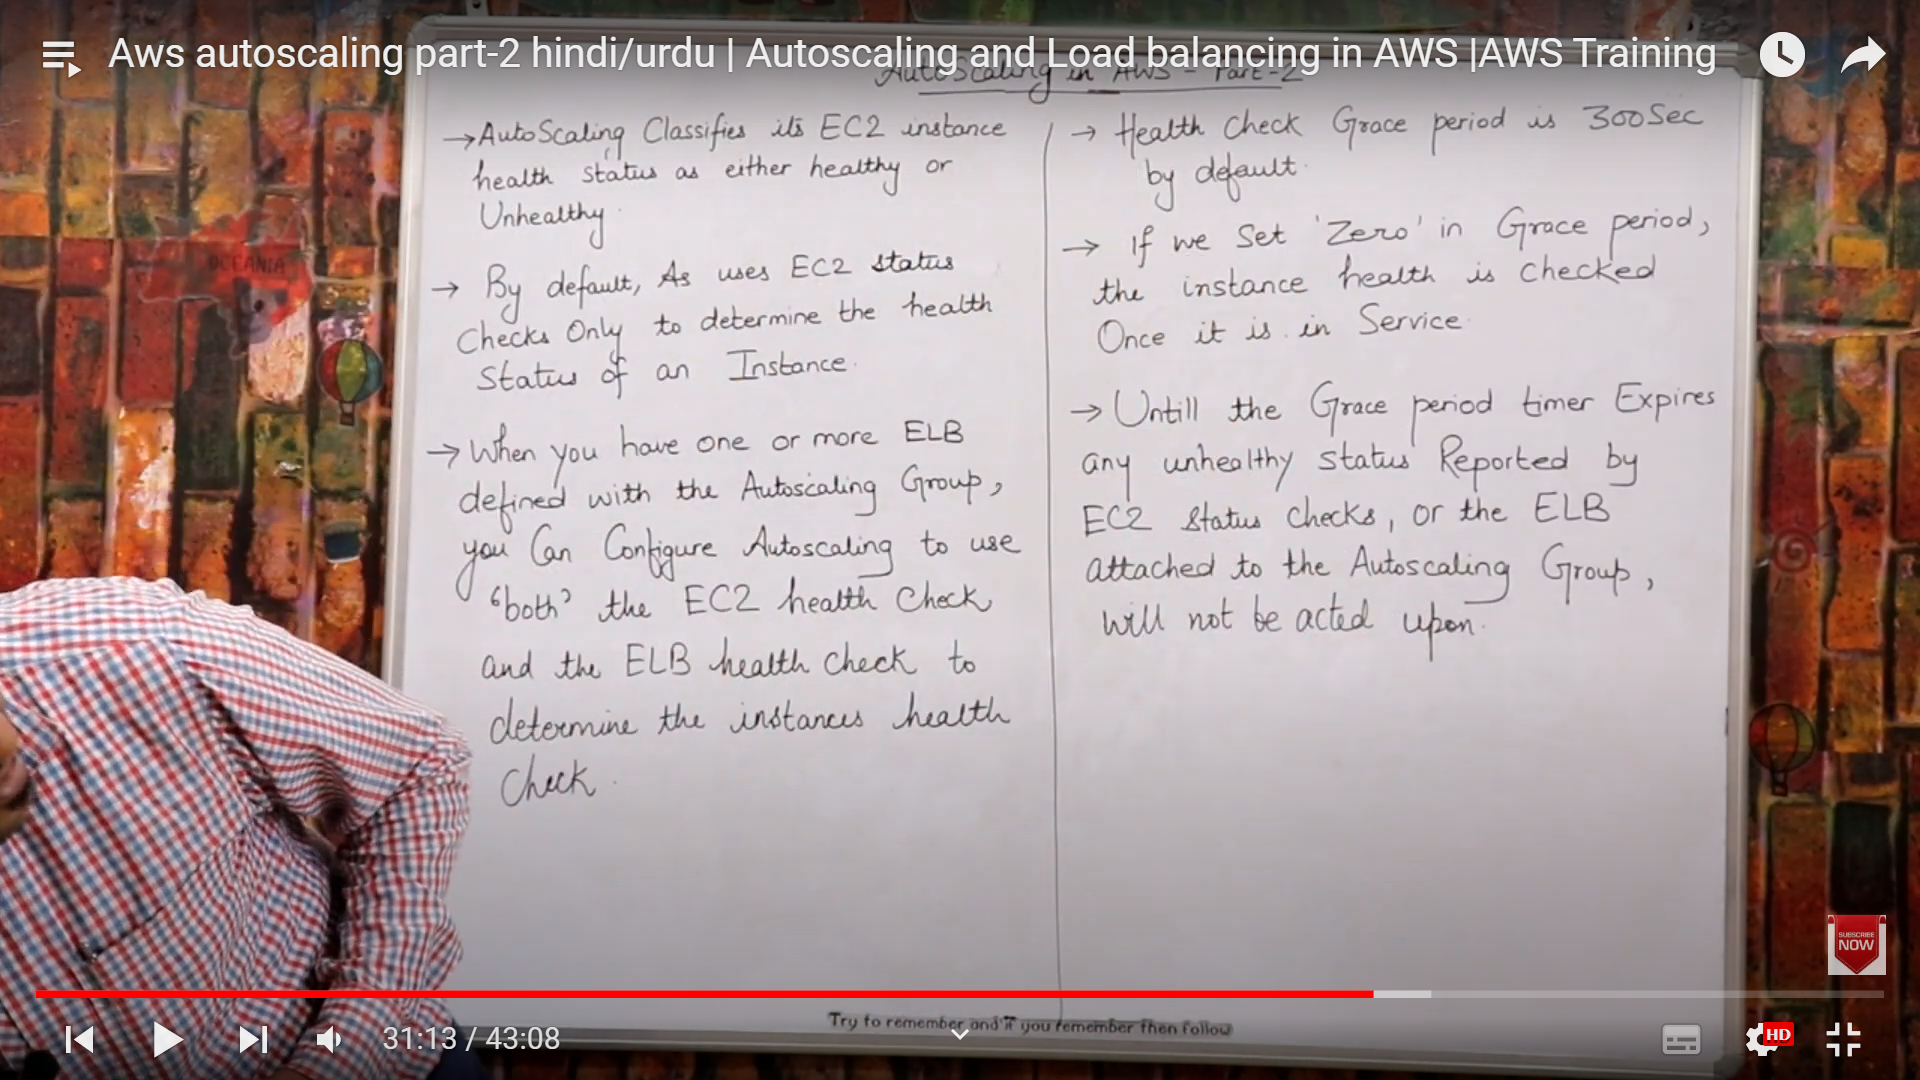 Aws autoscaling part-2 hindi/urdu | Autoscaling and Load balancing in AWS |AWS Training
AutoScaling in AWS - Part-2
→ AutoScaling Classifies its EC2 instance
health status as either healthy or
Unhealthy.
→ By default, As uses EC2 status
Checks Only to determine the health
Status of an Instance.
→ When you have one or more ELB
defined with the Autoscaling Group,
you Can Configure Autoscaling to use
'both' the EC2 health Check
and the ELB health check to
determine the instances health
Check.
→ Health Check Grace period is 300Sec
by default.
→ If we Set 'Zero' in Grace period,
the instance health is checked
Once it is in Service.
→ Untill the Grace period timer Expires
any unhealthy status Reported by
EC2 Status Checks, or the ELB
attached to the Autoscaling Group,
will not be acted upon.
OCEANIA
SUBSCRIBE
NOW
Try to remember and if you remember then follow
31:13 / 43:08
HD